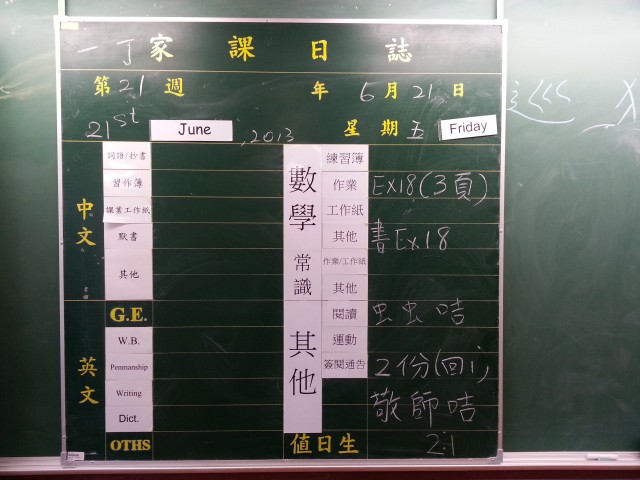 一丁家課日誌
第21週 年6月21日
21st June, 2013 星期五 Friday
中文
詞語/抄書
習作簿
課業工作紙
默書
其他
G.E.
英文
W.B.
Penmanship
Writing
Dict.
OTHS
數學
練習簿
作業 EX18(3頁)
工作紙
其他 書Ex18
常識
作業/工作紙
其他
其他
閱讀 虫虫咭
運動
簽閱通告 2份(回1)
敬師咭
值日生 21